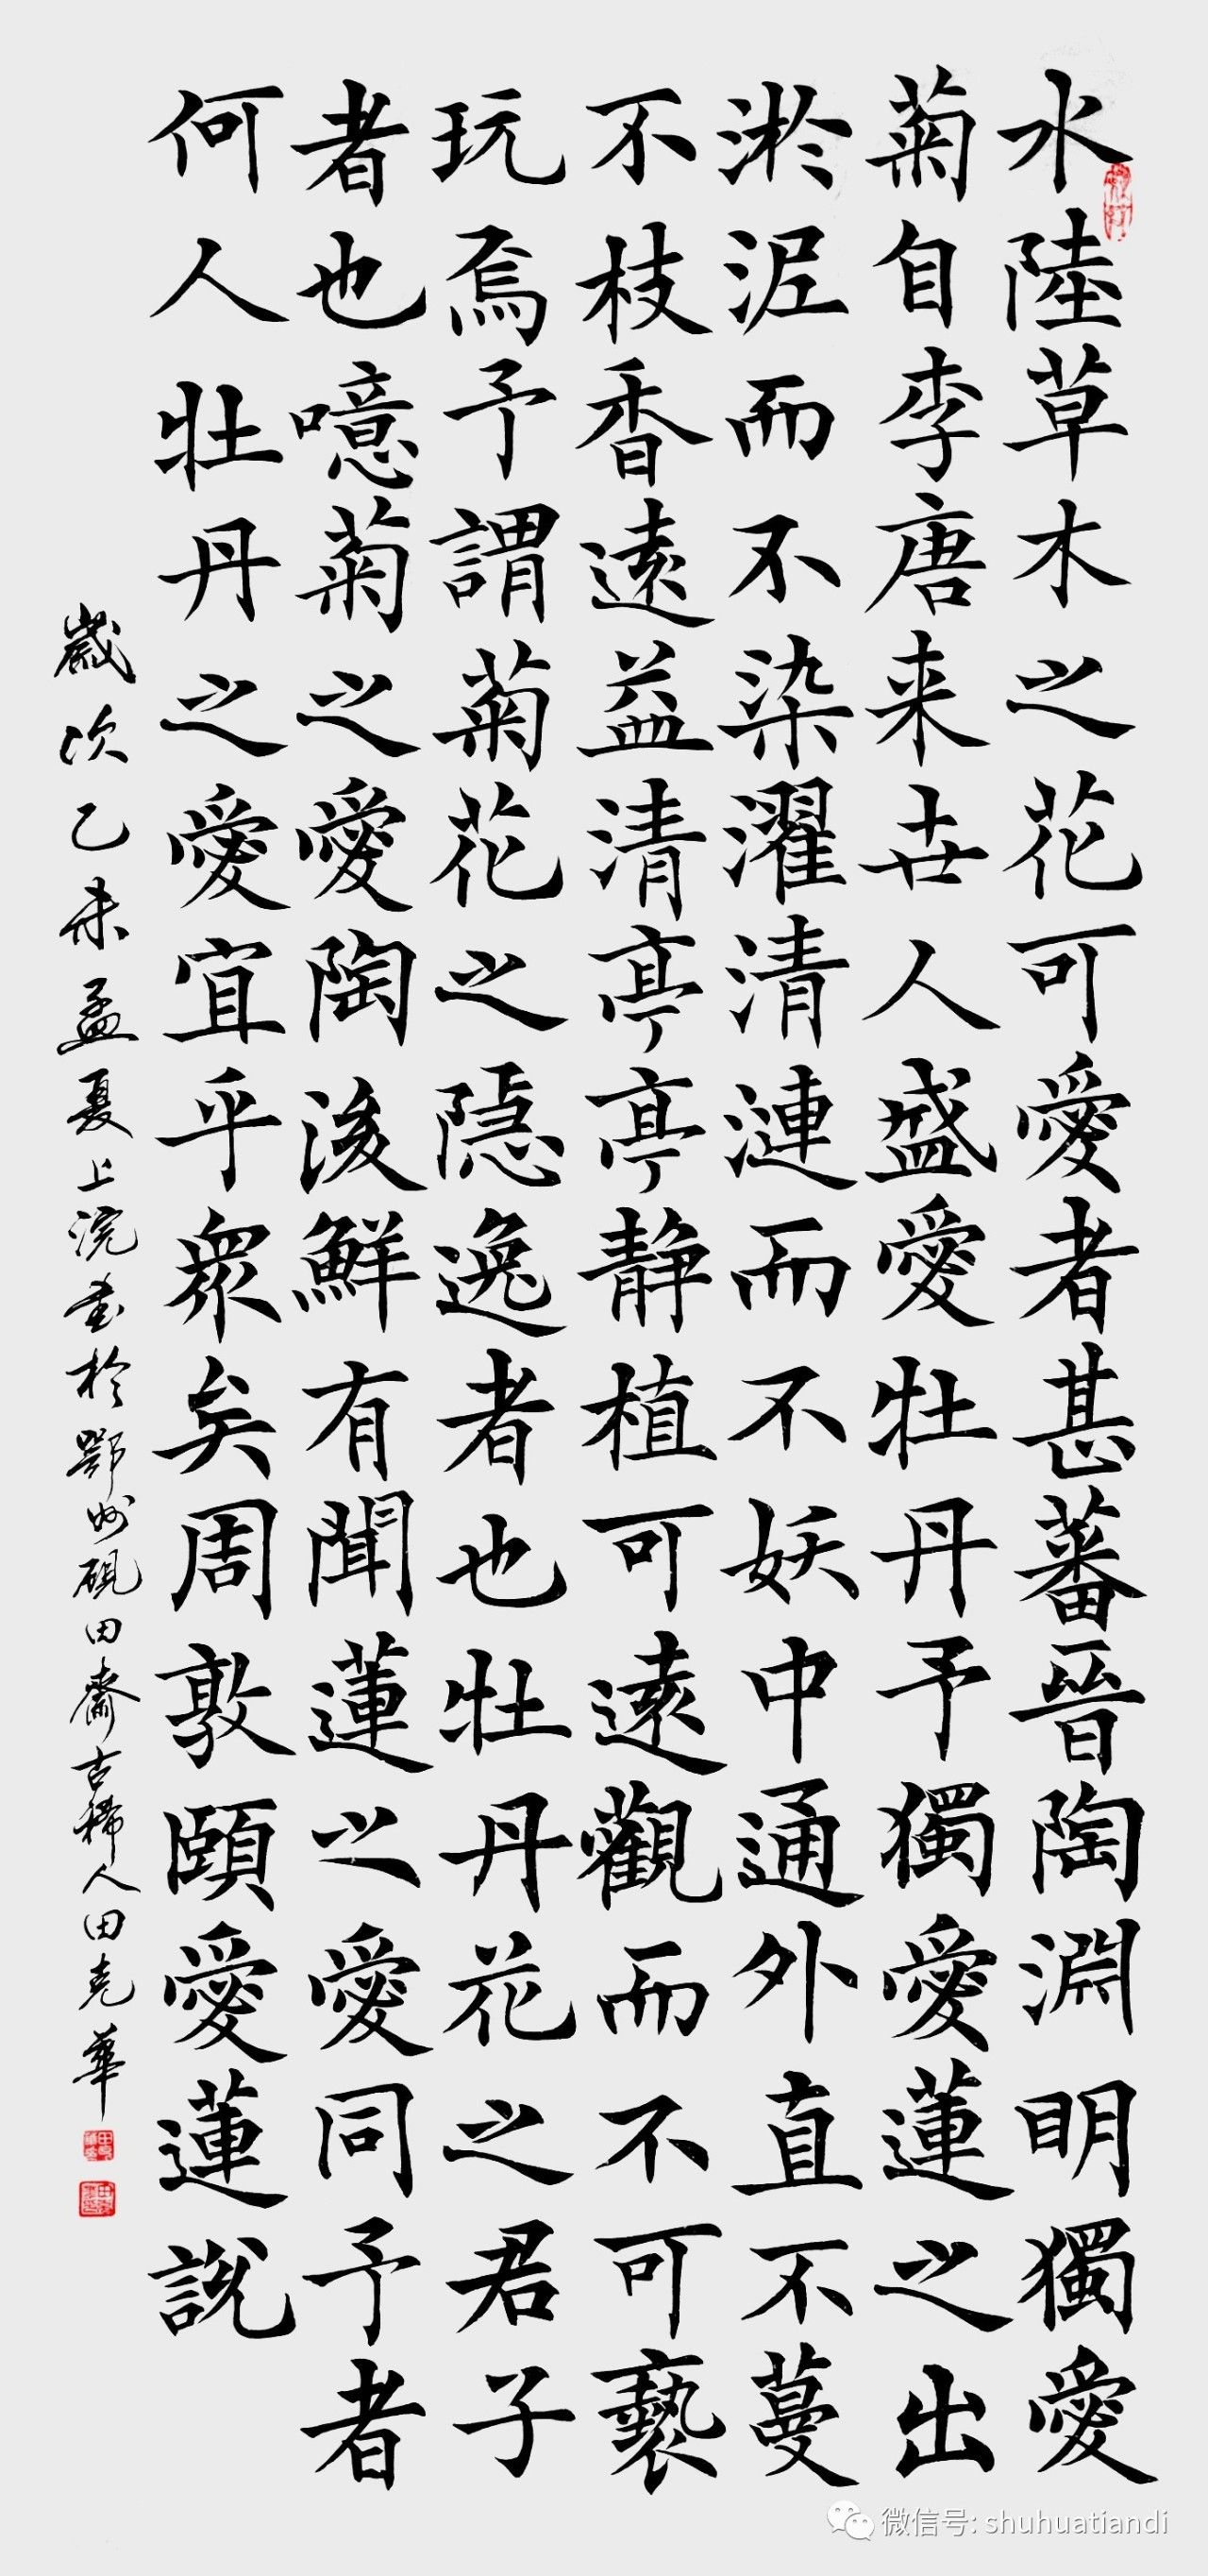 水陸草木之花可愛者甚蕃晉陶淵明獨愛
菊自李唐来世人盛愛牡丹予獨愛蓮之出
淤泥而不染濯清漣而不妖中通外直不蔓
不枝香遠益清亭亭静植可遠觀而不可褻
玩焉予謂菊花之隱逸者也牡丹花之君子
者也噫菊之愛陶後鮮有聞蓮之愛同予者
何人牡丹之愛宜乎眾矣周敦頤愛蓮說
歲次乙未孟夏上浣書於鄂州硯田齋古稀人田克華
微信号: shuhuatiandi